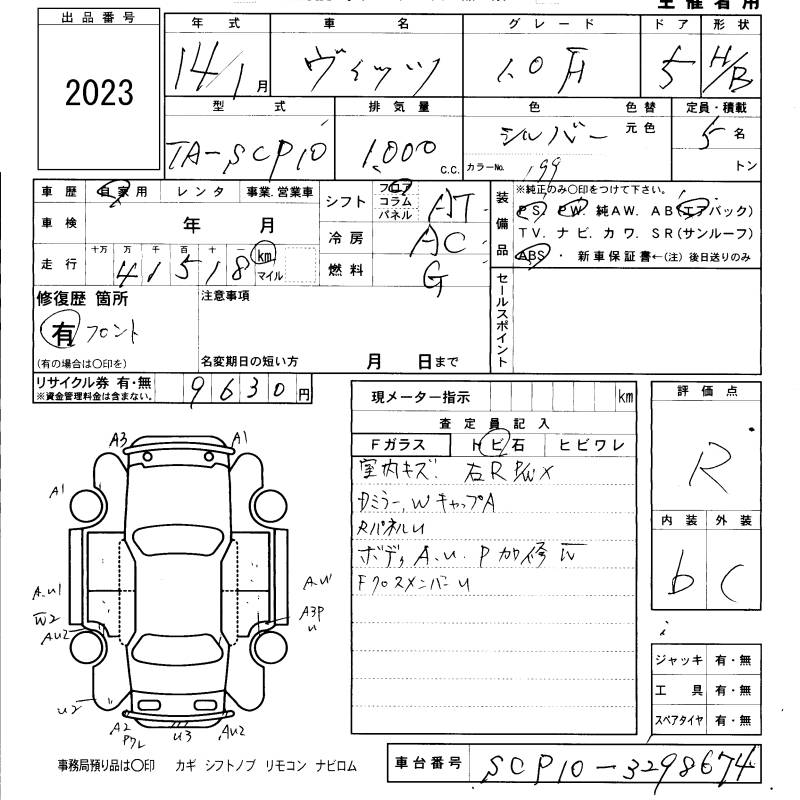 主催者用
出品番号
2023
年式 車名 グレード ドア 形状
14/1月 ヴィッツ 1.0F 5 H/B
型式 排気量 色 色替 定員・積載
TA-SCP10 1,000 C.C. シルバー 元色 5名
カラーNo. 199 トン
車歴 自家用 レンタ 事業.営業車
車検 年 月
走行 十万 万 千 百 十 一 km マイル
41518
シフト フロア コラム パネル AT
冷房 AC
燃料 G
装備品 ※純正のみ〇印をつけて下さい。
PS. PW. 純AW. AB(エアバック)
TV. ナビ. カワ. SR(サンルーフ)
ABS ・ 新車保証書←(注)後日送りのみ
セールスポイント
修復歴 箇所 注意事項
有 フロント
(有の場合は〇印を) 名変期日の短い方 月 日まで
リサイクル券 有・無 9630円
※資金管理料金は含まない。
現メーター指示 km
査定員記入
Fガラス トビ石 ヒビワレ
室内キズ. 右R P/W×
Dミラー, WキャップA
RパネルU
ボディA.U.P加修W
FクロスメンバーU
評価点
R
内装 外装
b C
A3 A1
A1
A.U1 A.U1
W2 A3P
AU2 U
U2
A2 U3 AU2
Pワレ
ジャッキ 有・無
工具 有・無
スペアタイヤ 有・無
事務局預り品は〇印 カギ シフトノブ リモコン ナビロム
車台番号 SCP10-3298674